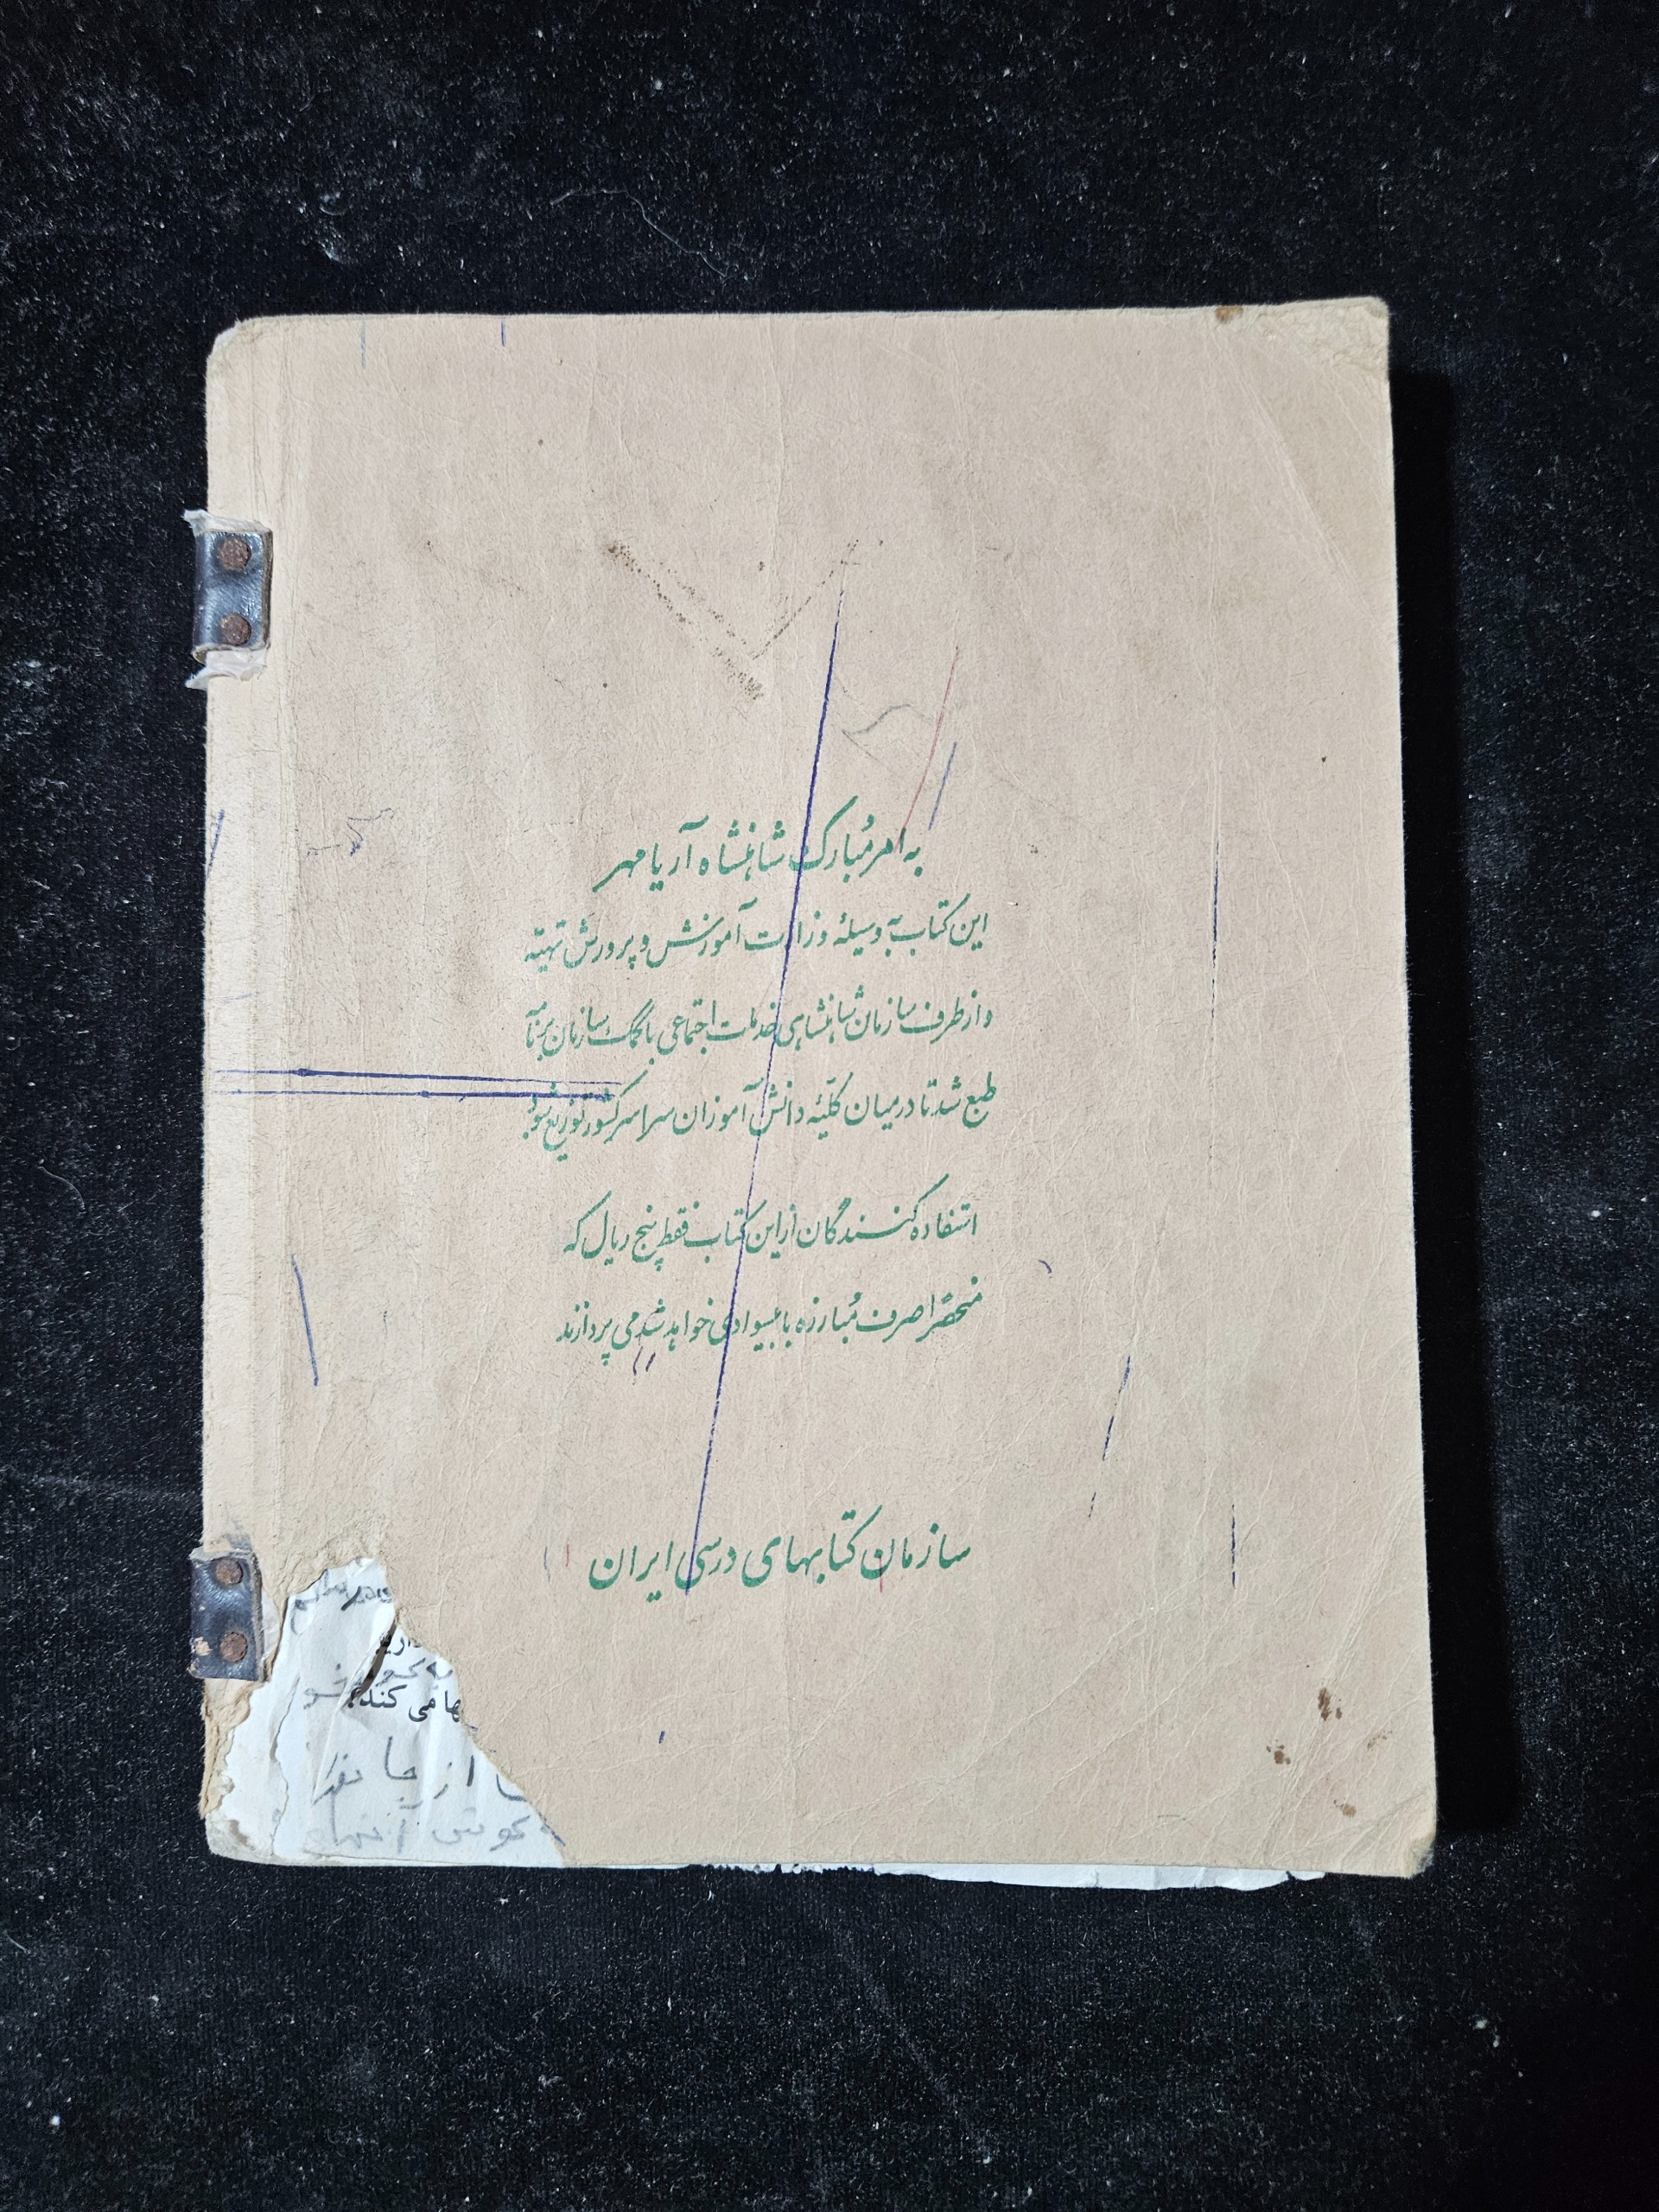 به امر مُبارک شاهنشاه آریامهر
این کتاب به وسیلهٔ وزارت آموزش و پرورش تهیّه
و از طرف سازمان شاهنشاهی خدمات اجتماعی با کمک سازمان برنامه
طبع شد تا در میان کلّیّهٔ دانش آموزان سراسر کشور توزیع شود
استفاده کنندگان از این کتاب فقط پنج ریال که
منحصراً صرف مُبارزه با بیسوادی خواهد شد می پردازند
سازمان کتابهای درسی ایران
می کند؟
از جا